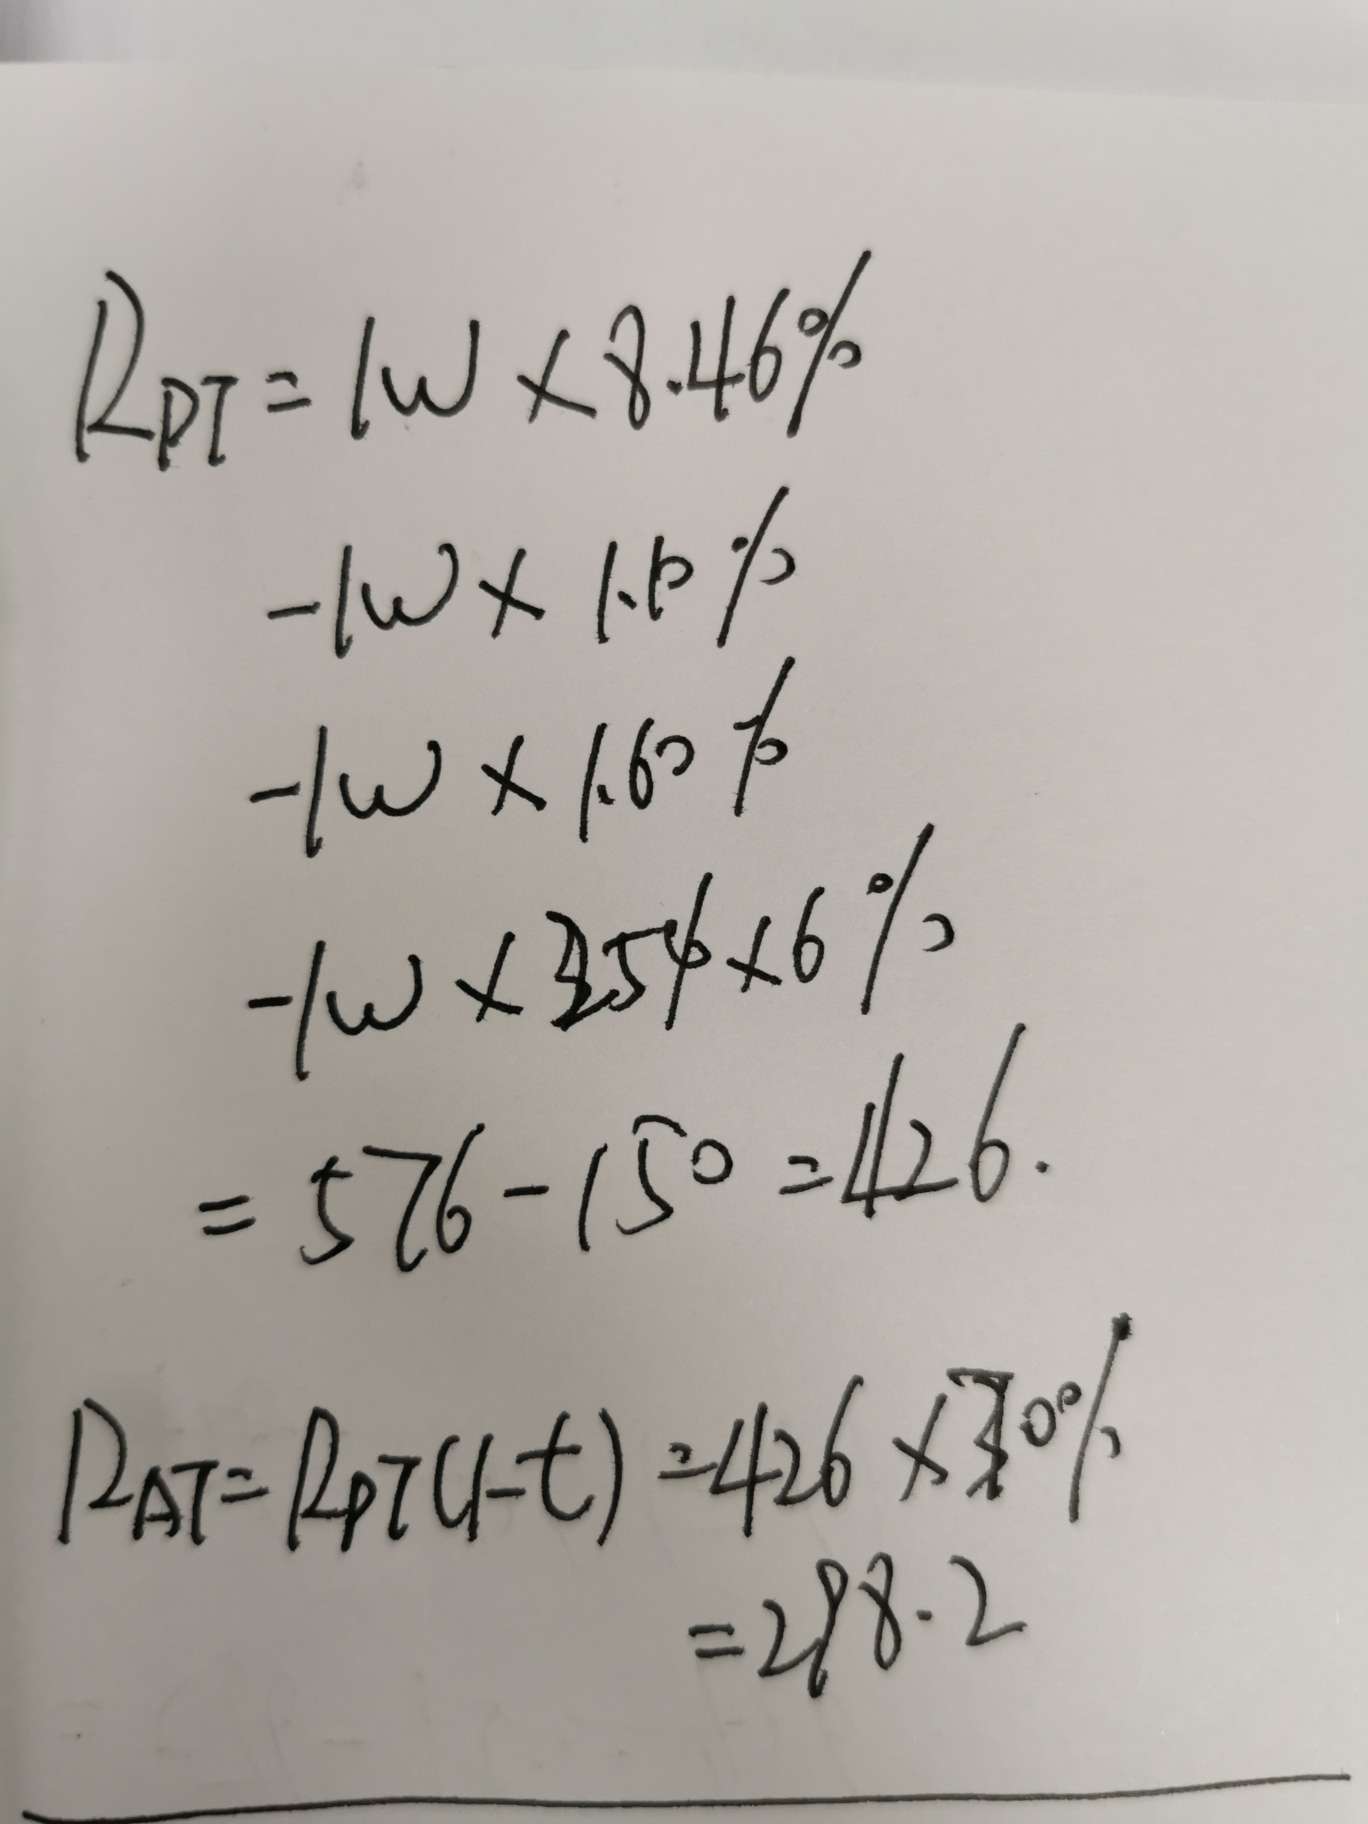 RPT = 1W × 8.46%
-1W × 1.10%
-1W × 1.60%
-1W × 25% × 6%
= 576 - 150 = 426.
RAT = RPT(1-t) = 426 × 70%
= 298.2